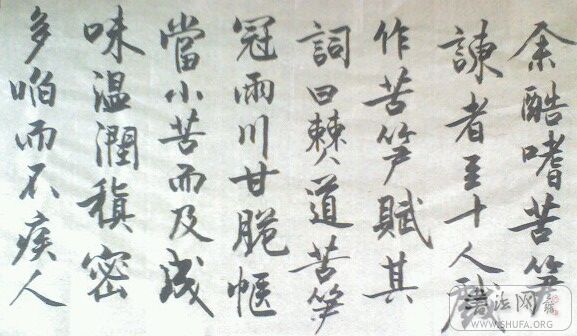 余酷嗜苦笋
諫者至十人
作苦笋賦其
詞曰僰道苦笋
冠兩川甘脆愜
當小苦而及成
味温潤稹密
多啗而不疾人
书法网
WWW.SHUFA.ORG